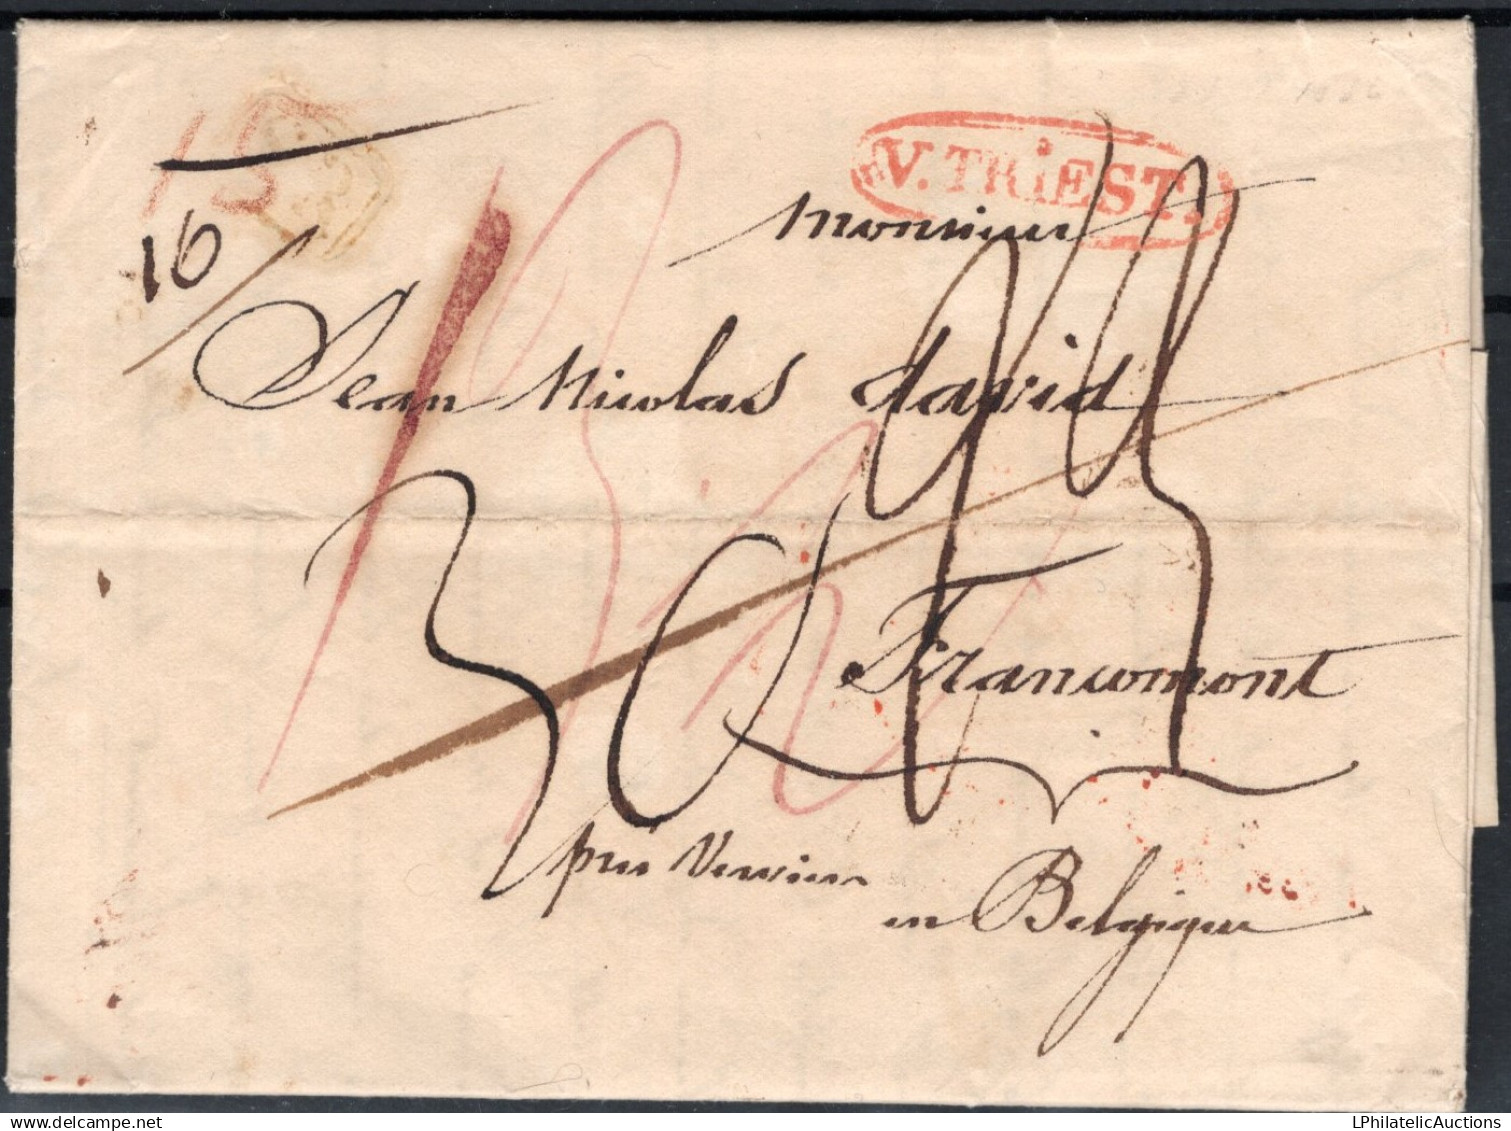 15
V. TRiEST.
16
Monsieur
Jean Nicolas david
30
Francomont
près Verviers
en Belgique
LPhilatelicAuctions